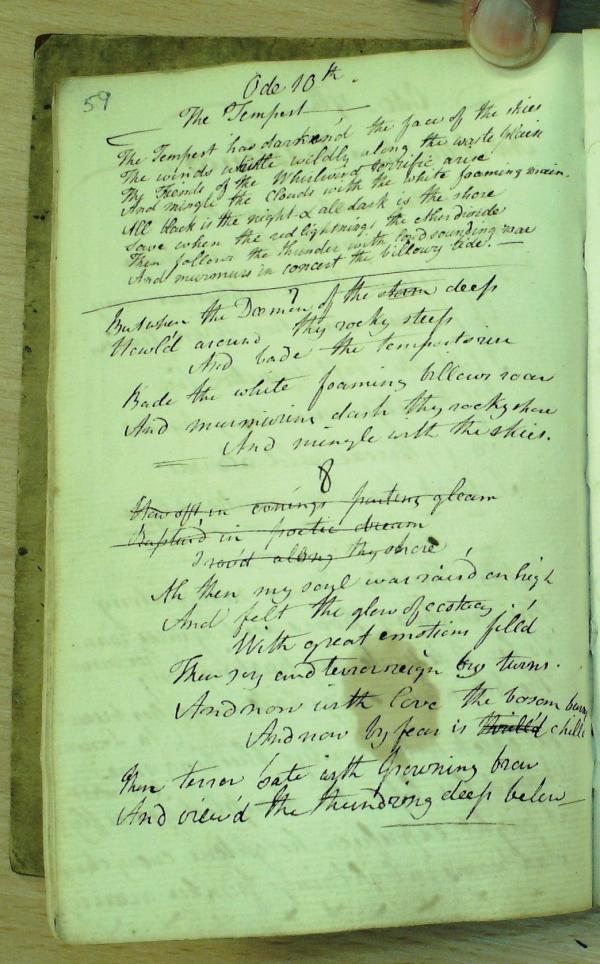 59
Ode 10th.
The Tempest
The Tempest has darken'd the face of the skies
The winds whistle wildly along the waste plain
The Fiends of the Whirlwind terrific arise
And mingle the Clouds with the white foaming main.
All dark is the night & all dark is the shore
Save when the red lightnings the ether divide
Then follows the thunder with loud sounding roar
And murmurs in concert the billowy tide. —
7
But when the Dæmon of the storm deep
Howl'd around thy rocky steep
And bade the tempests rise
Bade the white foaming billows roar
And murmuring dash thy rocky shore
And mingle with the skies.
8
How oft in evenings parting gleam
Raptur'd in poetic dream
I rov'd along thy shore
Ah then my soul was rais'd on high
And felt the glow of ecstacy
With great emotions fill'd
Then joy and terror reign by turns.
And now with Love the bosom burns
And now by fear is thrill'd chill
Then terror sate with frowning brow
And view'd the thund'ring deep below